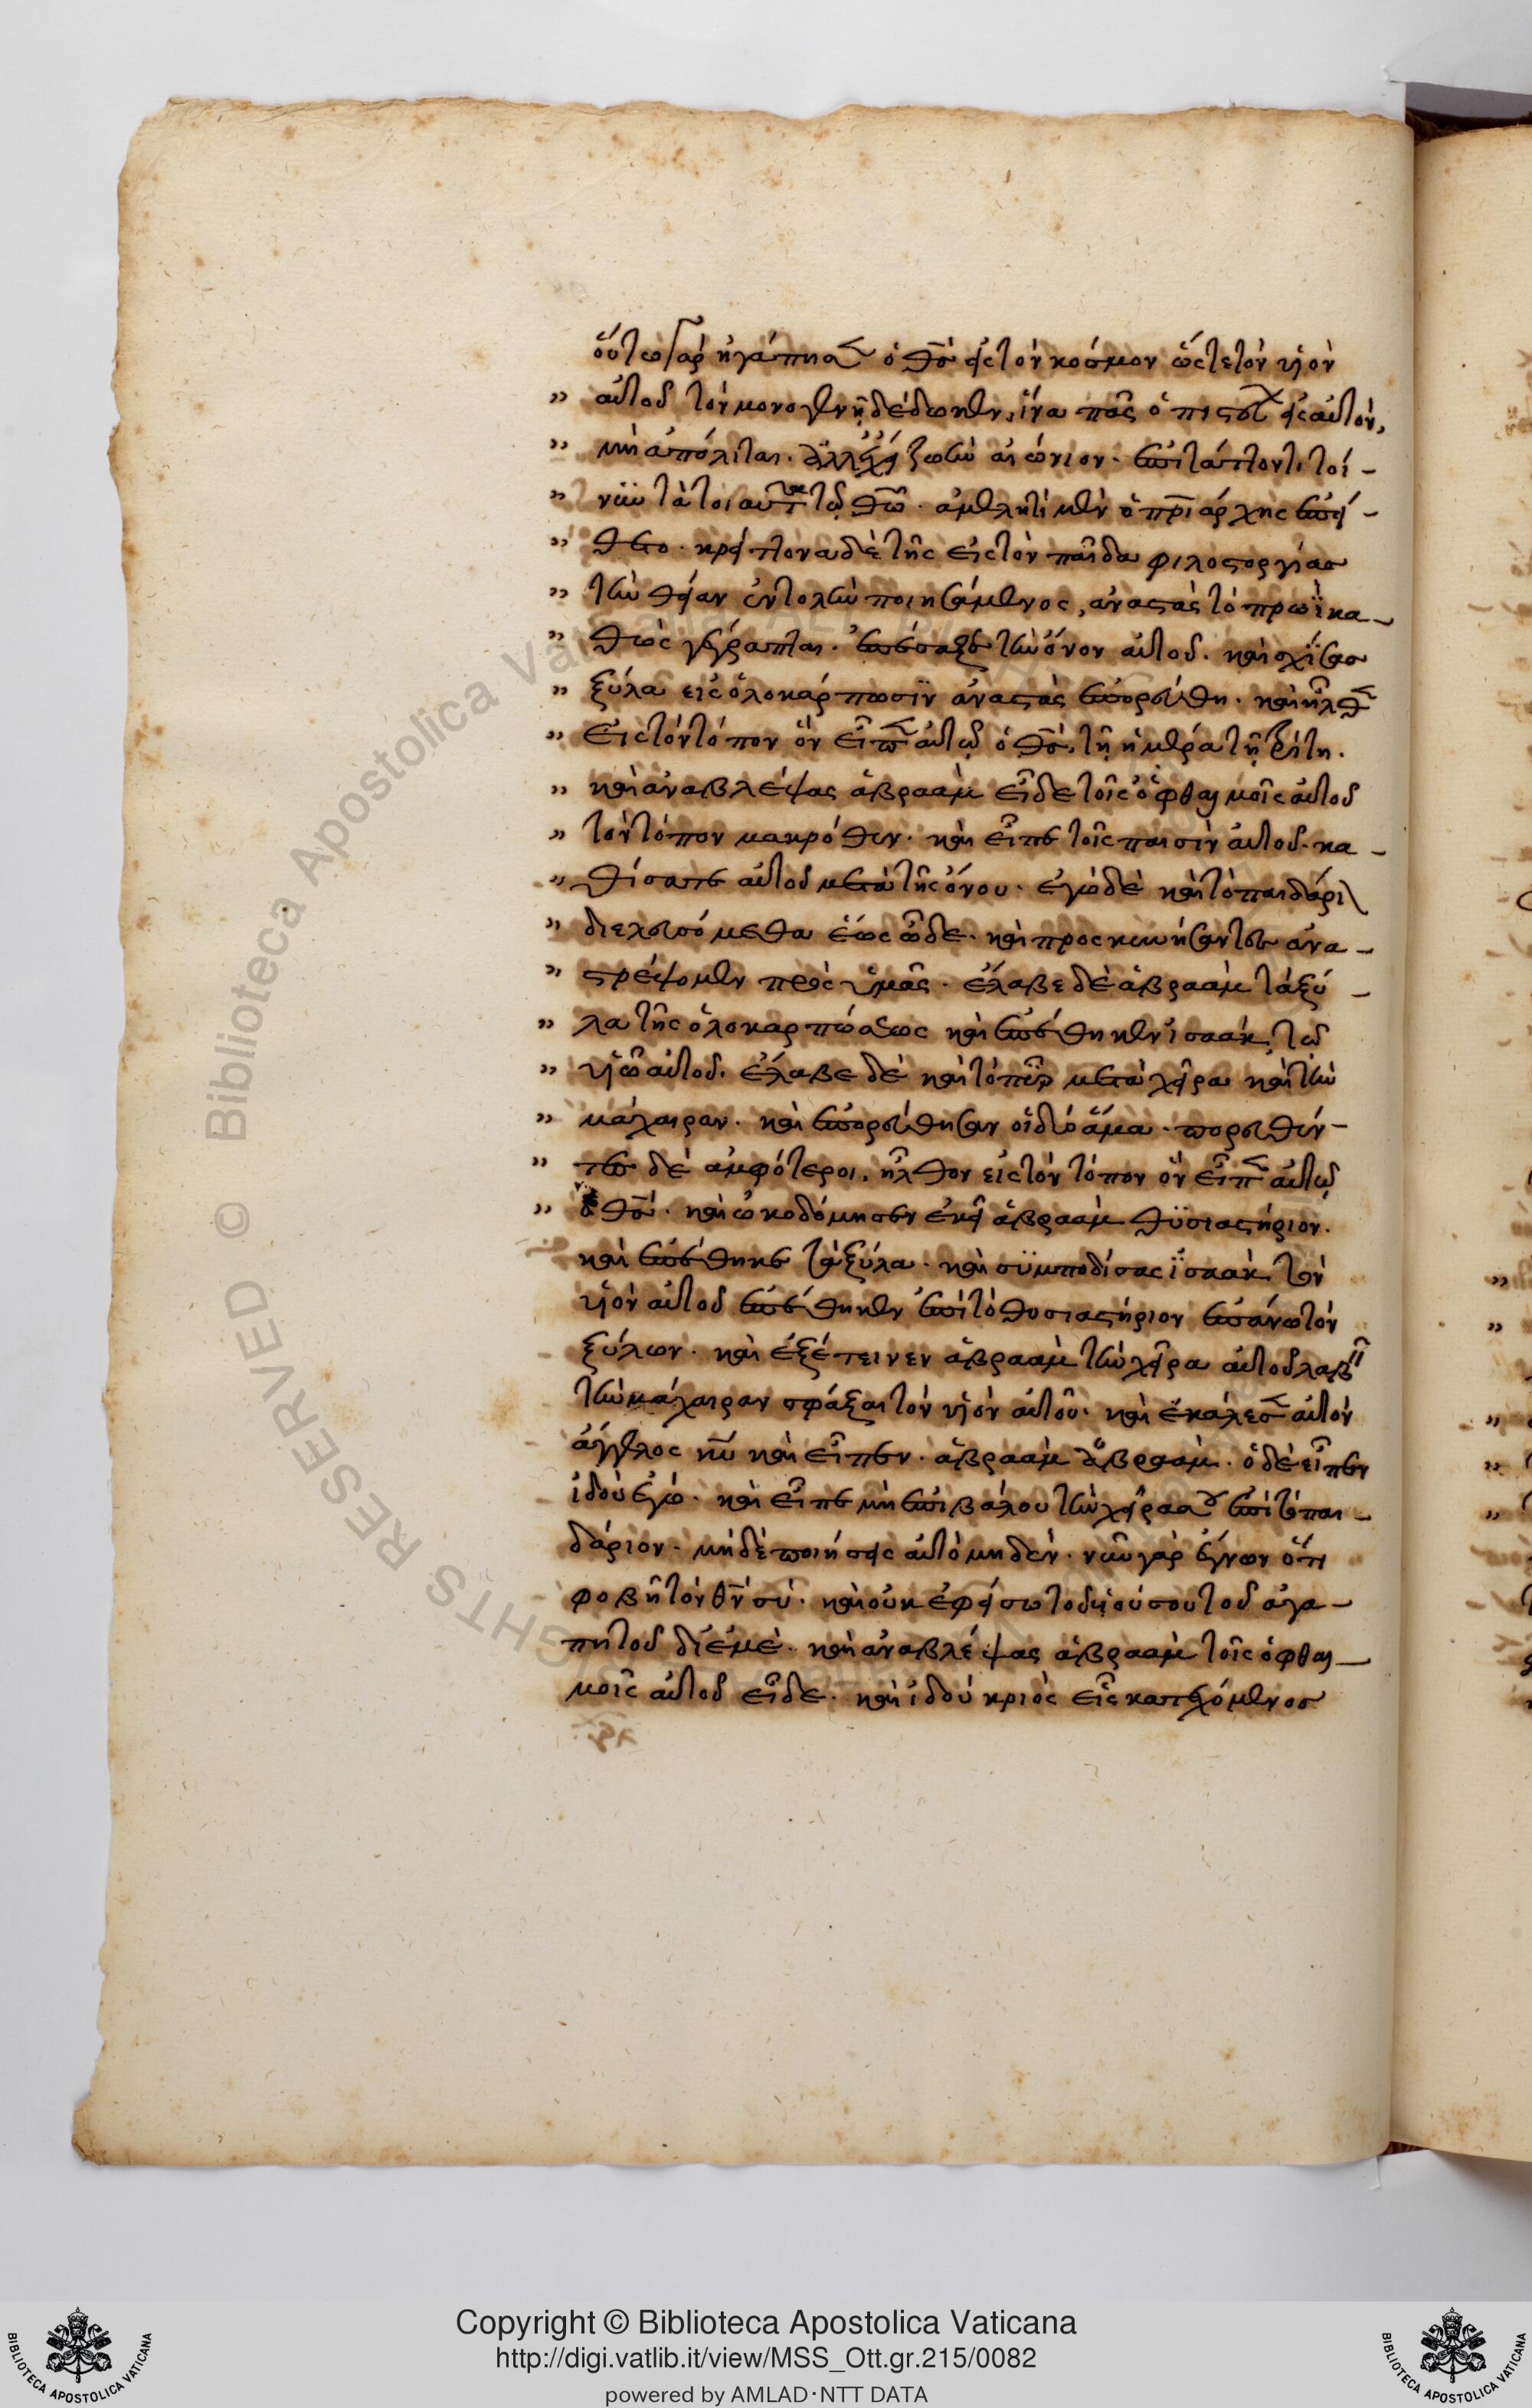 οὕτω γὰρ ἠγάπησεν ὁ θς̅ εἰς τὸν κόσμον ὥστε τὸν υἱὸν
" αὐτοῦ τὸν μονογενῆ δέδωκεν, ἵνα πᾶς ὁ πιστεύων εἰς αὐτὸν,
" μὴ ἀπόληται. ἀλλ' ἔχει ζωὴν αἰώνιον. ἐπιτάττοντι τοί-
" νυν τὰ τοιαῦτα τῷ θῶ̅. ἀμελητὶ μὲν ὁ πρι̅άρχης ἐπεί-
" θετο. κρείττονα δὲ τῆς εἰς τὸν παῖδα φιλοστοργίας
" τὴν θείαν ἐντολὴν ποιησάμενος, ἀναστὰς τὸ πρωῒ κα-
" θὼς γέγραπται. ἐπέσαξε τὴν ὄνον αὐτοῦ. καὶ σχίσας
" ξύλα εἰς ὁλοκάρπωσιν ἀναστὰς ἐπορεύθη. καὶ ἦλθεν
" εἰς τὸν τόπον ὃν εἶπεν αὐτῷ ὁ θς̅, τῇ ἡμέρα τῇ τρίτη.
" καὶ ἀναβλέψας ἀβραὰμ εἶδε τοῖς ὀφθαλμοῖς αὐτοῦ
" τὸν τόπον μακρόθεν. καὶ εἶπε τοῖς παισὶν αὐτοῦ. κα-
" θίσατε αὐτοῦ μετὰ τῆς ὄνου. ἐγὼ δὲ καὶ τὸ παιδάριον
" διελευσόμεθα ἕως ὧδε. καὶ προσκυνήσαντες ἀνα-
" στρέψομεν πρὸς ὑμᾶς. ἔλαβε δὲ ἀβραὰμ τὰ ξύ-
" λα τῆς ὁλοκαρπώσεως καὶ ἐπέθηκεν ἰσαὰκ τῷ
" υἱῷ αὐτοῦ. ἔλαβε δὲ καὶ τὸ πῦρ μετὰ χεῖρα καὶ τὴν
" μάχαιραν. καὶ ἐπορεύθησαν οἱ δύο ἅμα. πορευθέν-
" τες δὲ ἀμφότεροι, ἦλθον εἰς τὸν τόπον ὃν εἶπεν αὐτῷ
" ὁ θς̅. καὶ ὠκοδόμησεν ἐκεῖ ἀβραὰμ θυσιαστήριον.
καὶ ἐπέθηκε τὰ ξύλα. καὶ συμποδίσας ἰσαὰκ τὸν
υἱὸν αὐτοῦ ἐπέθηκεν ἐπὶ τὸ θυσιαστήριον ἐπάνω τῶν
ξύλων. καὶ ἐξέτεινεν ἀβραὰμ τὴν χεῖρα αὐτοῦ λαβεῖν
τὴν μάχαιραν σφάξαι τὸν υἱὸν αὐτοῦ. καὶ ἐκάλεσεν αὐτὸν
ἄγγελος κυ̅ καὶ εἶπεν. ἀβραὰμ ἀβραάμ. ὁ δὲ εἶπεν
ἰδοὺ ἐγώ. καὶ εἶπε μὴ ἐπιβάλου τὴν χεῖρά σου ἐπὶ τὸ παι-
δάριον. μὴ δὲ ποιήσης αὐτὸ μηδέν. νῦν γὰρ ἔγνων ὅτι
φοβῆ τὸν θν̅ σύ. καὶ οὐκ ἐφείσω τοῦ υἱοῦ σου τοῦ ἀγα-
πητοῦ δι' ἐμέ. καὶ ἀναβλέψας ἀβραὰμ τοῖς ὀφθαλ-
μοῖς αὐτοῦ εἶδε. καὶ ἰδοὺ κριὸς εἷς κατεχόμενος
Copyright © Biblioteca Apostolica Vaticana
http://digi.vatlib.it/view/MSS_Ott.gr.215/0082
powered by AMLAD·NTT DATA